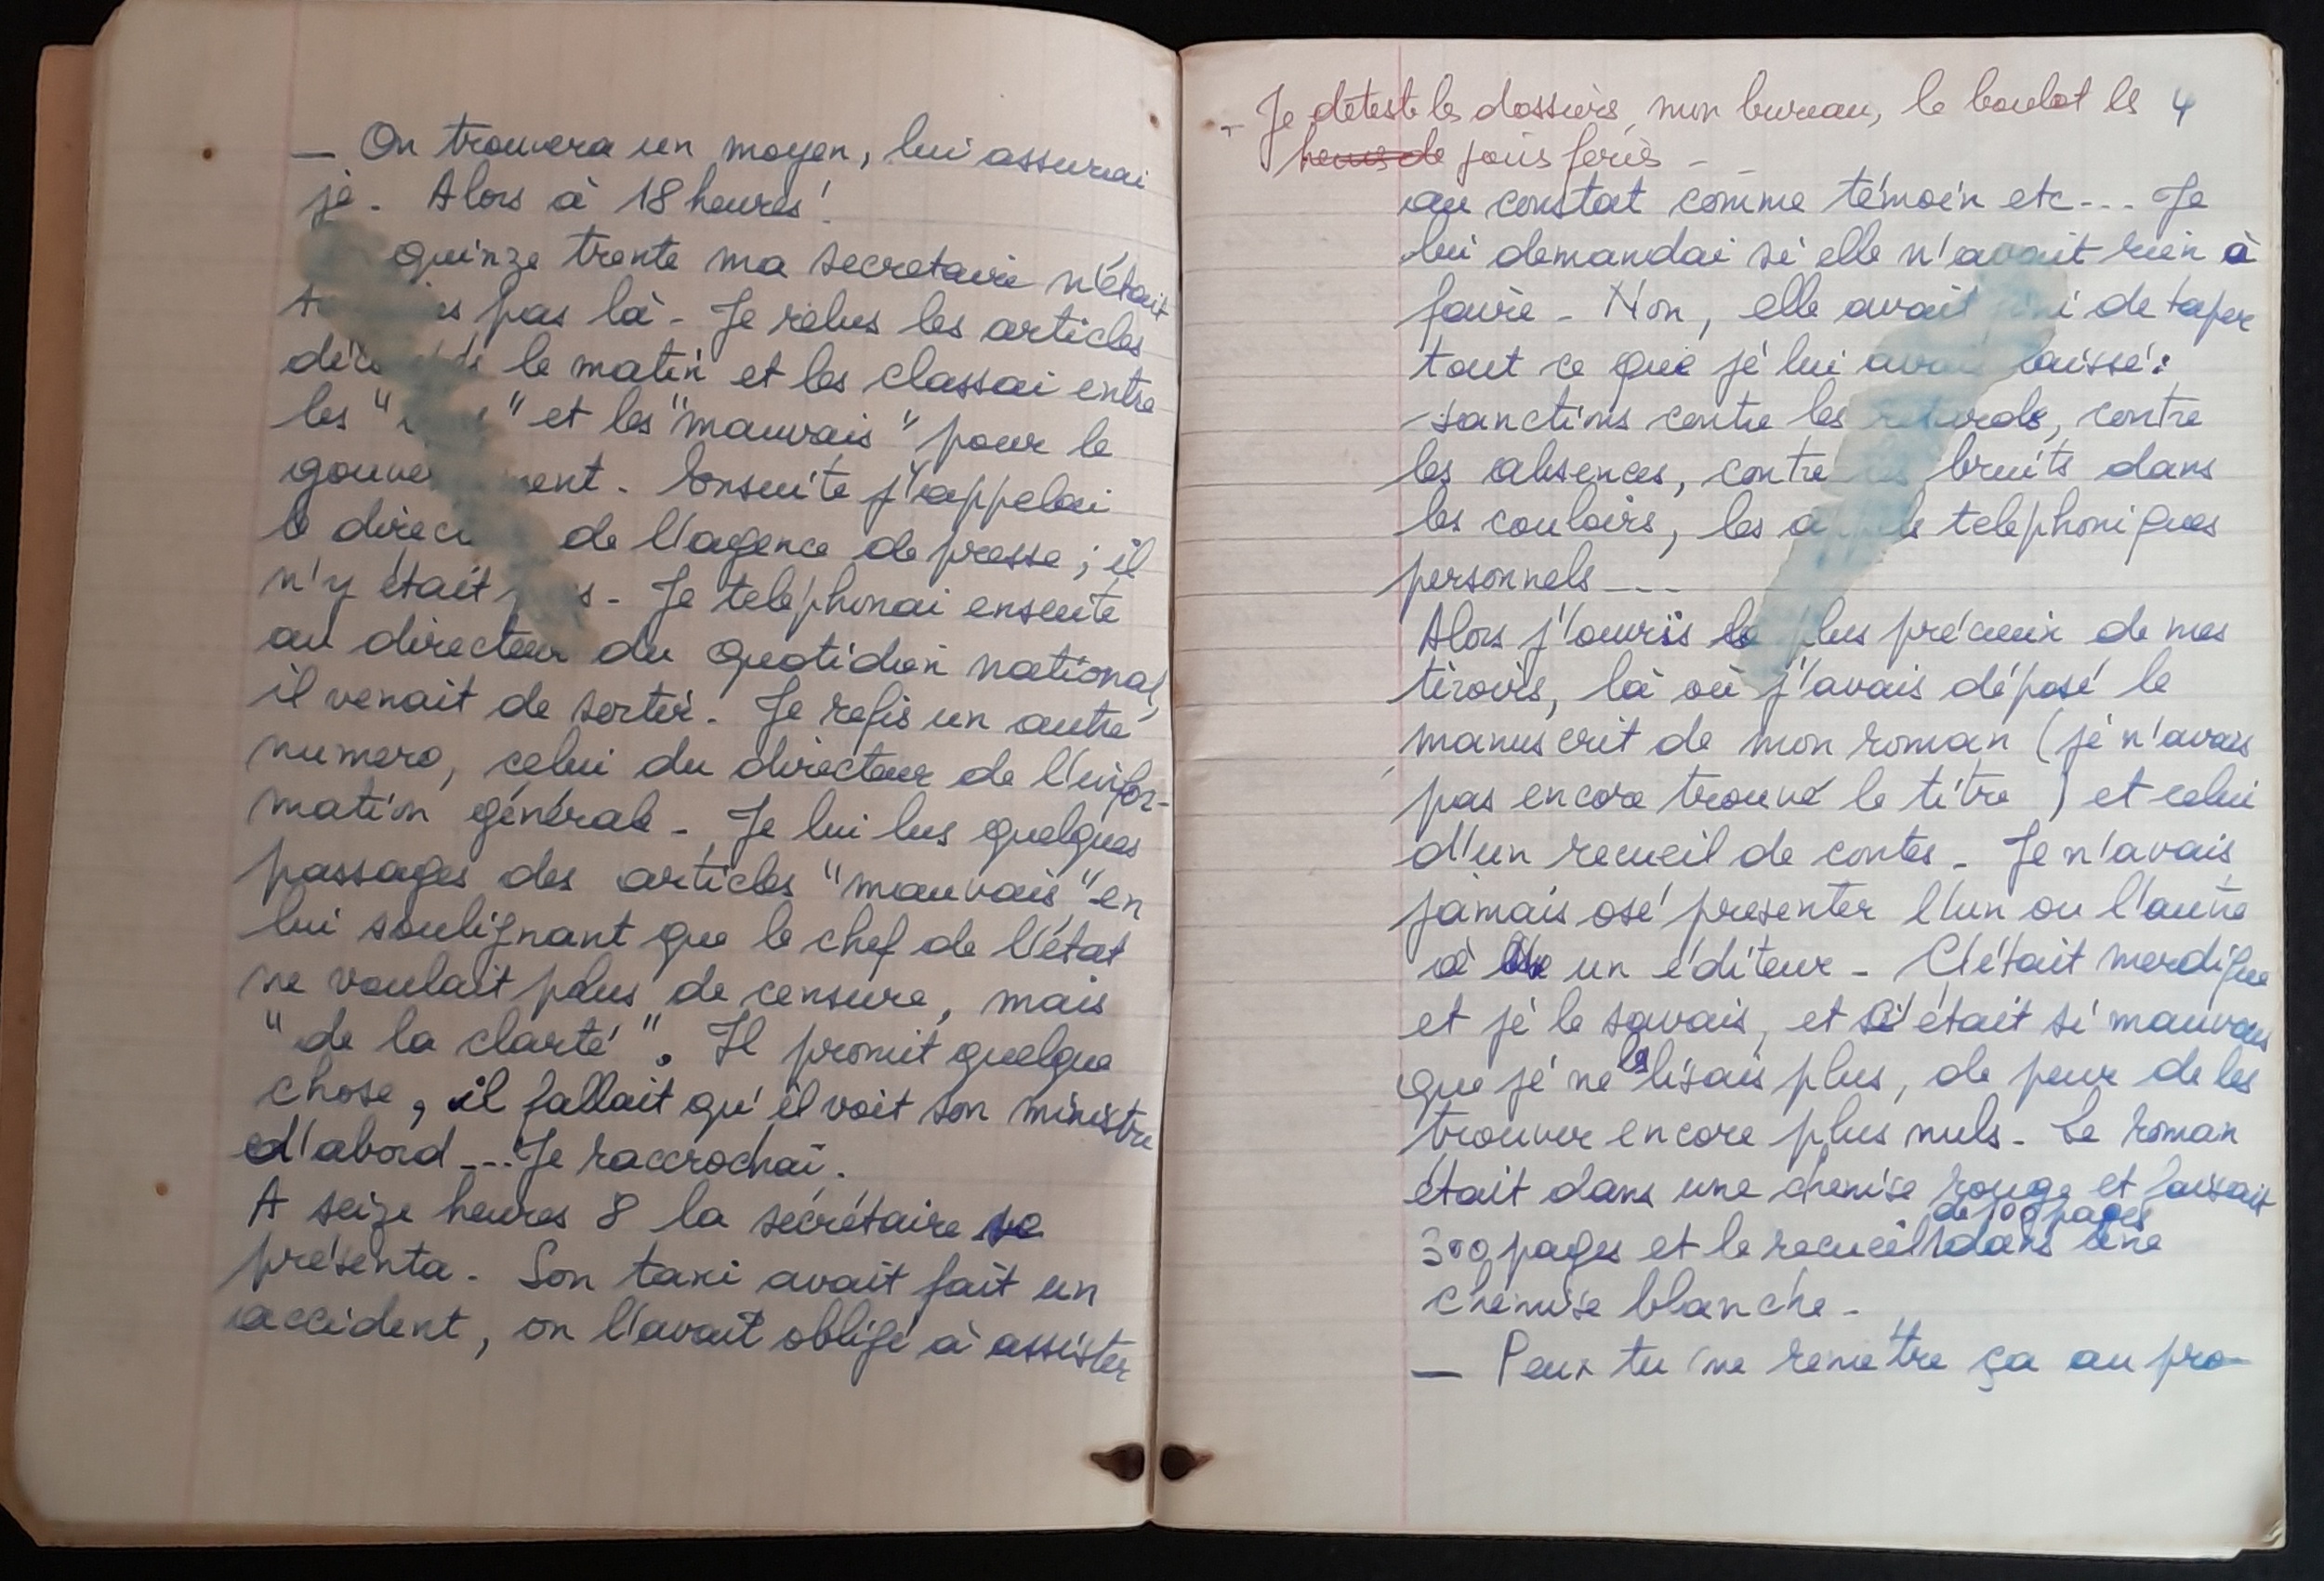 — On trouvera un moyen, lui assurai
je. Alors à 18 heures!
quinze trente ma secretaire n'était
pas là - Je relus les articles
le matin et les classai entre
les " " et les "mauvais" pour le
gouvernement. Ensuite j'appelai
le directeur de l'agence de presse ; il
n'y était pas - Je telephonai ensuite
au directeur du quotidien national,
il venait de sortir. Je refis un autre
numero, celui du directeur de l'infor-
mation générale - Je lui lus quelques
passages des articles "mauvais" en
lui soulignant que le chef de l'état
ne voulait plus de censure, mais
"de la clarté". Il promit quelque
chose, il fallait qu'il voit son ministre
d'abord --- Je raccrochai.
A seize heures 8 la secrétaire se
présenta. Son taxi avait fait un
accident, on l'avait obligé à assister
4
- Je déteste les dossiers, mon bureau, le boulot les
heures de jours feriés -
au constat comme témoin etc--- Je
lui demandai si elle n'avait rien à
faire - Non, elle avait fini de taper
tout ce que je lui avais laissé :
sanctions contre les retards, contre
les absences, contre les bruits dans
les couloirs, les appels telephoniques
personnels ---
Alors j'ouvris le plus précieux de mes
tiroirs, là où j'avais déposé le
manuscrit de mon roman (je n'avais
pas encore trouvé le titre) et celui
d'un recueil de contes - Je n'avais
jamais osé presenter l'un ou l'autre
à un éditeur - C'était merdique
et je le savais, et c'était si mauvais
que je ne les lisais plus, de peur de les
trouver encore plus nuls - Le roman
était dans une chemise rouge et faisait
300 pages et le recueil de 100 pages dans une
chemise blanche -
— Peux tu me remettre ça au pro-